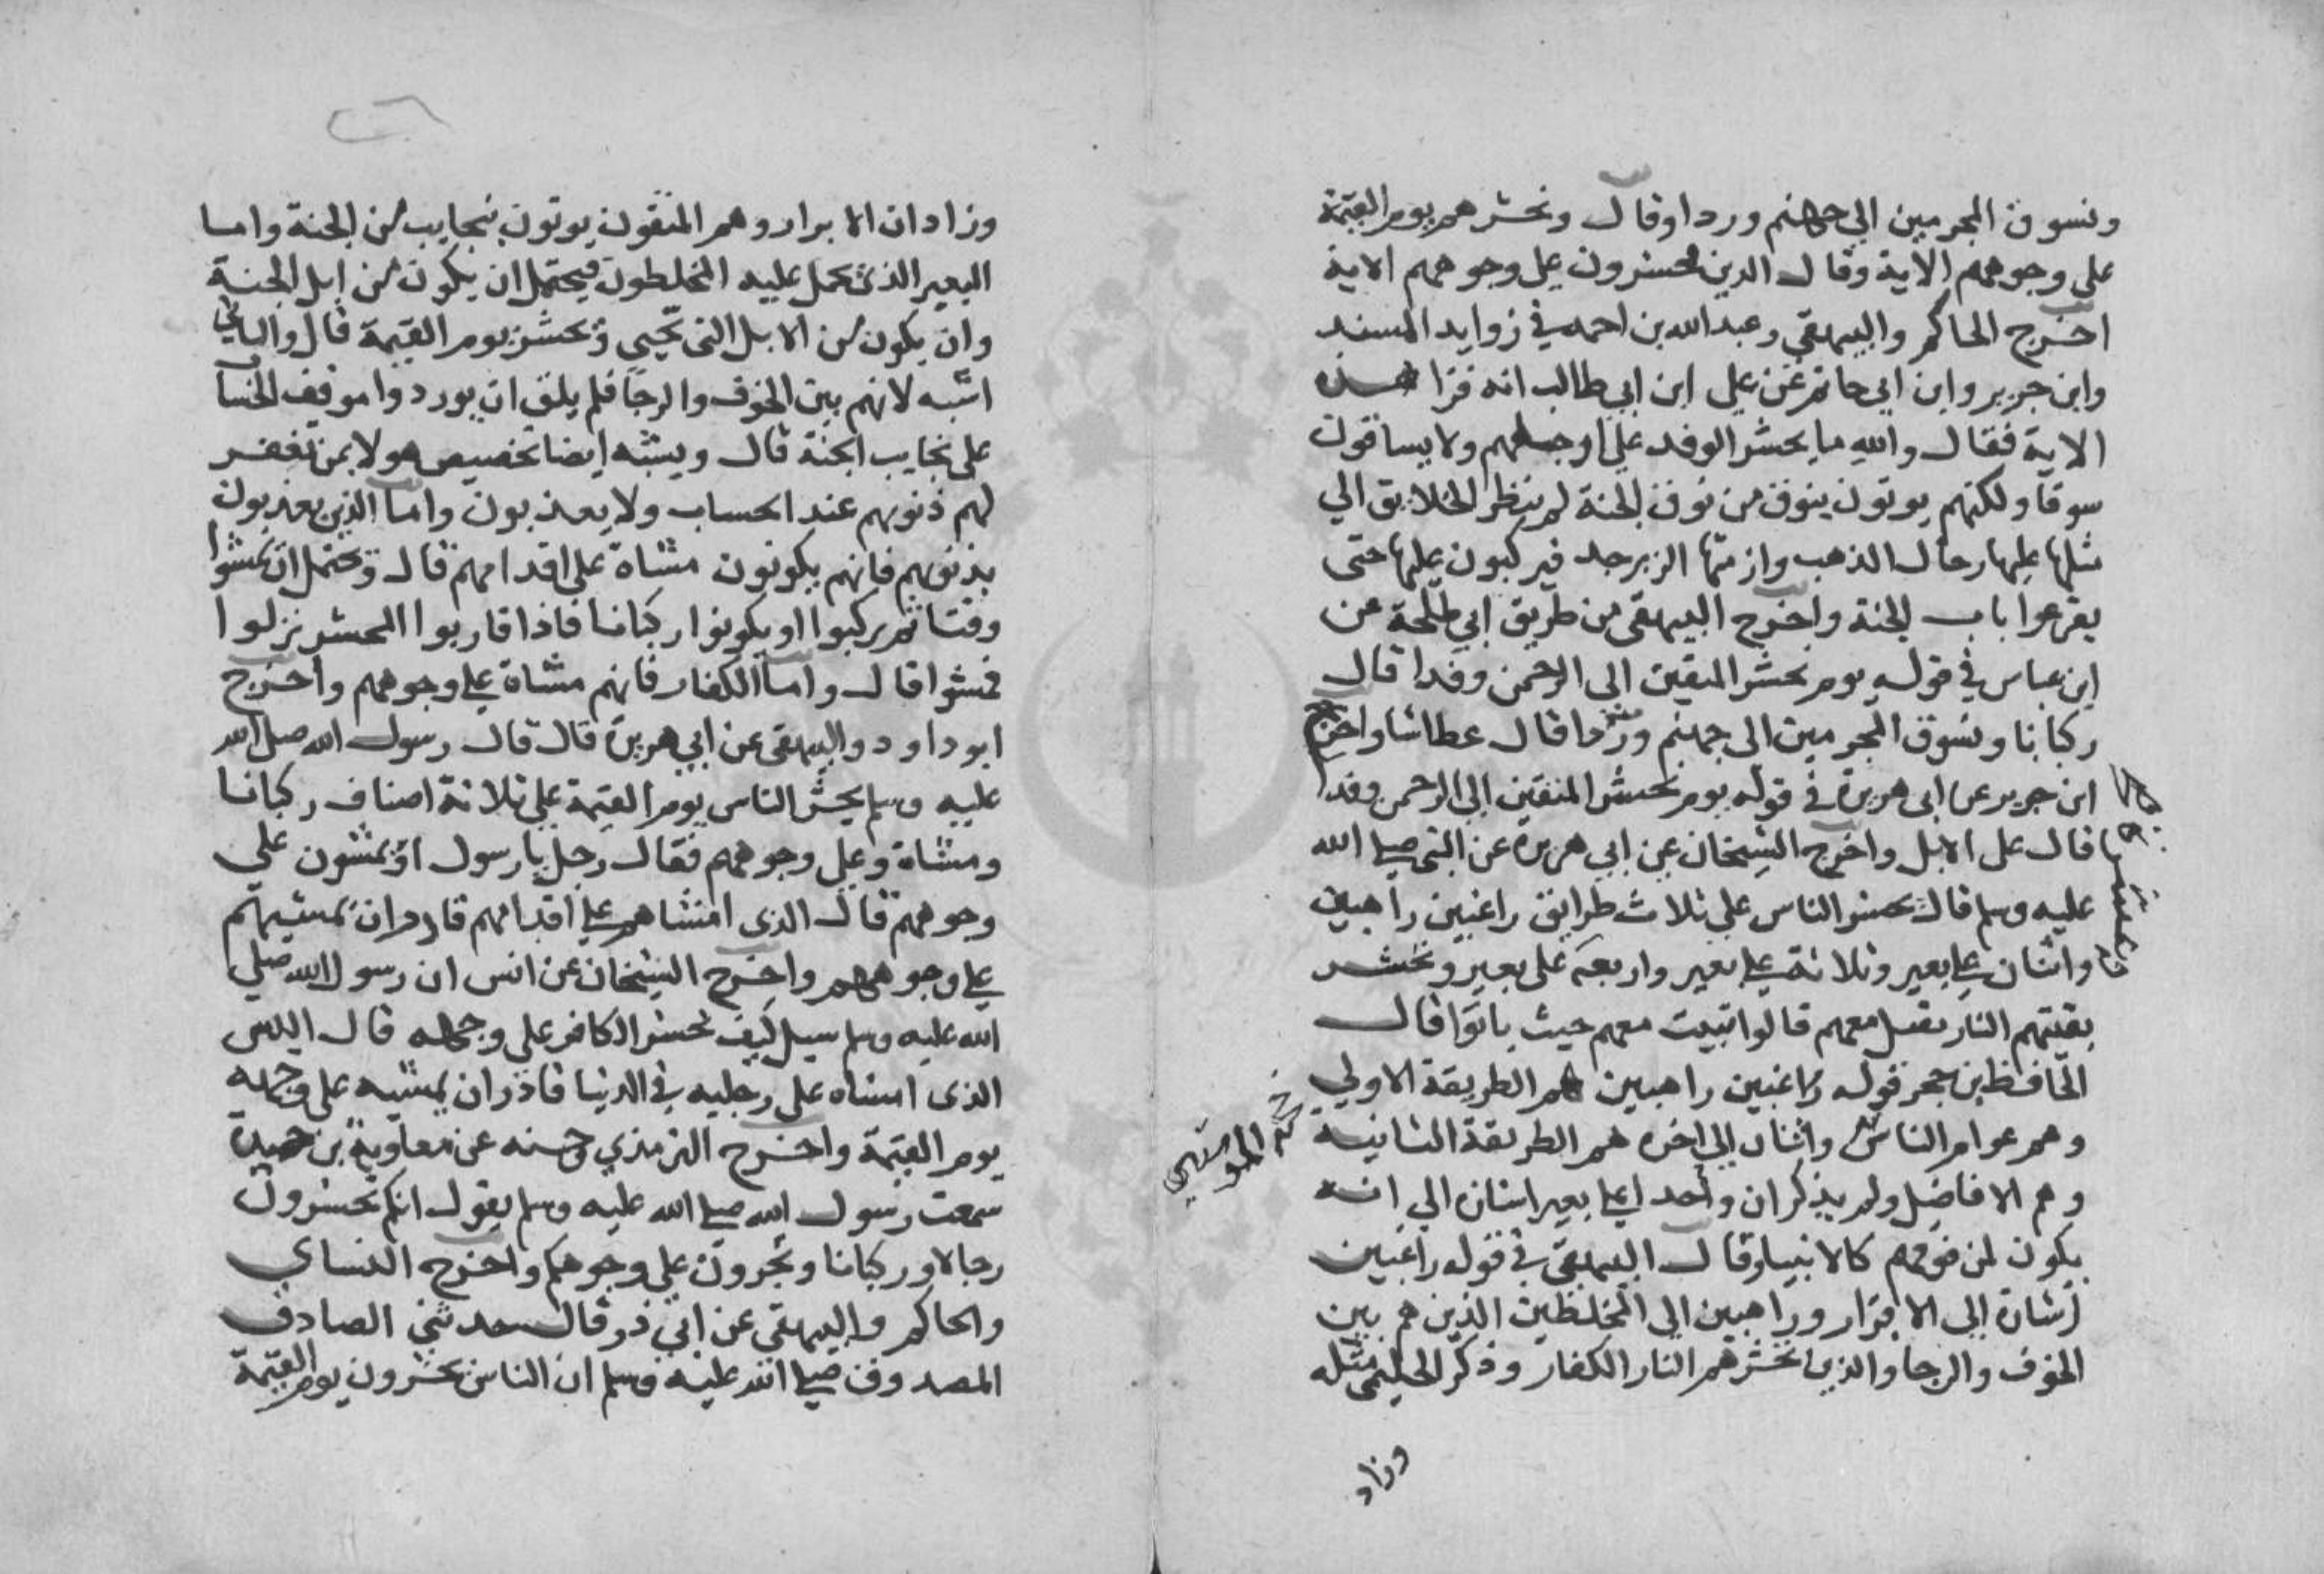 ونسوق المجرمين الي جهنم وردا وقال ونحشرهم يوم القيمة
على وجوههم الاية وقال الدين يحشرون على وجوههم الاية
اخرج الحاكم والبيهقي وعبد الله بن احمد في زوايد المسند
وابن جرير وابن ابي حاتم عن علي ابن ابي طالب انه قرا هذه
الاية فقال والله ما يحشر الوفد على ارجلهم ولا يساقون
سوقا ولكنهم يوتون بنوق من نوق الجنة لم ينظر الخلايق الي
مثلها عليها رحال الذهب وازمتها الزبرجد فيركبون عليها حتى
يقرعوا باب الجنة واخرج البيهقي من طريق ابي طلحة عن
ابن عباس في قوله يوم نحشر المتقين الى الرحمن وفدا قال
ركبانا ونسوق المجرمين الى جهنم وردا قال عطاشا واخرج
ابن جرير عن ابى هريرة في قوله يوم نحشر المتقين الي الرحمن وفدا
قال على الابل واخرج الشيخان عن ابي هريرة عن النبي صلي الله
عليه وسلم قال يحشر الناس على ثلاث طرايق راغبين راهبين
واثنان علي بعير وثلاثة علي بعير واربعة على بعير وتحشر
بقيتهم النار تقيل معهم قالوا تبيت معهم حيث باتوا قال
الحافظ بن حجر قوله راغبين راهبين هم الطريقة الاولي
وهم عوام الناس واثنان الي اخره هم الطريقة الثانية
وهم الافاضل ولم يذكر ان واحدا علي بعير اشارة الي انه
يكون لمن فوقهم كالانبيا وقال البيهقي في قوله راغبين
اشارة الى الابرار وراهبين الى المخلطين الذين هم بين
الخوف والرجا والذين تحشرهم النار الكفار وذكر الحليمي مثله
وزاد
وزاد ان الابرار وهم المتقون يوتون بنجايب من الجنة واما
البعير الذى يحمل عليه المخلطون فيحتمل ان يكون من ابل الجنة
وان يكون من الابل التى تحيي وتحشر يوم القيمة قال والثاني
اشبه لانهم بين الخوف والرجا فلم يلق ان يوردوا موقف الحساب
على نجايب الجنة قال ويشبه ايضا تخصيص هولا بمن تغفر
لهم ذنوبهم عند الحساب ولا يعذبون واما الذين يعذبون
بذنوبهم فانهم يكونون مشاة على اقدامهم قال ويحتمل ان يمشوا
وقتا ثم يركبوا او يكونوا ركبانا فاذا قاربوا المحشر نزلوا
فمشوا قال واما الكفار فانهم مشاة علي وجوههم واخرج
ابو داود والبيهقي عن ابي هريرة قال قال رسول الله صلى الله
عليه وسلم يحشر الناس يوم القيمة على ثلاثة اصناف ركبانا
ومشاة وعلي وجوههم فقال رجل يا رسول او يمشون على
وجوههم قال الذى امشاهم علي اقدامهم قادر ان يمشيهم
علي وجوههم واخرج الشيخان عن انس ان رسول الله صلي
الله عليه وسلم سيل كيف يحشر الكافر على وجهه قال اليس
الذى امشاه على رجليه في الدنيا قادر ان يمشيه على وجهه
يوم القيمة واخرج الترمذي وحسنه عن معاوية بن حيدة
سمعت رسول الله صلي الله عليه وسلم يقول انكم تحشرون
رجالا وركبانا وتجرون علي وجوهكم واخرج النساي
والحاكم والبيهقي عن ابي ذر قال حدثني الصادق
المصدوق صلي الله عليه وسلم ان الناس يحشرون يوم القيمة